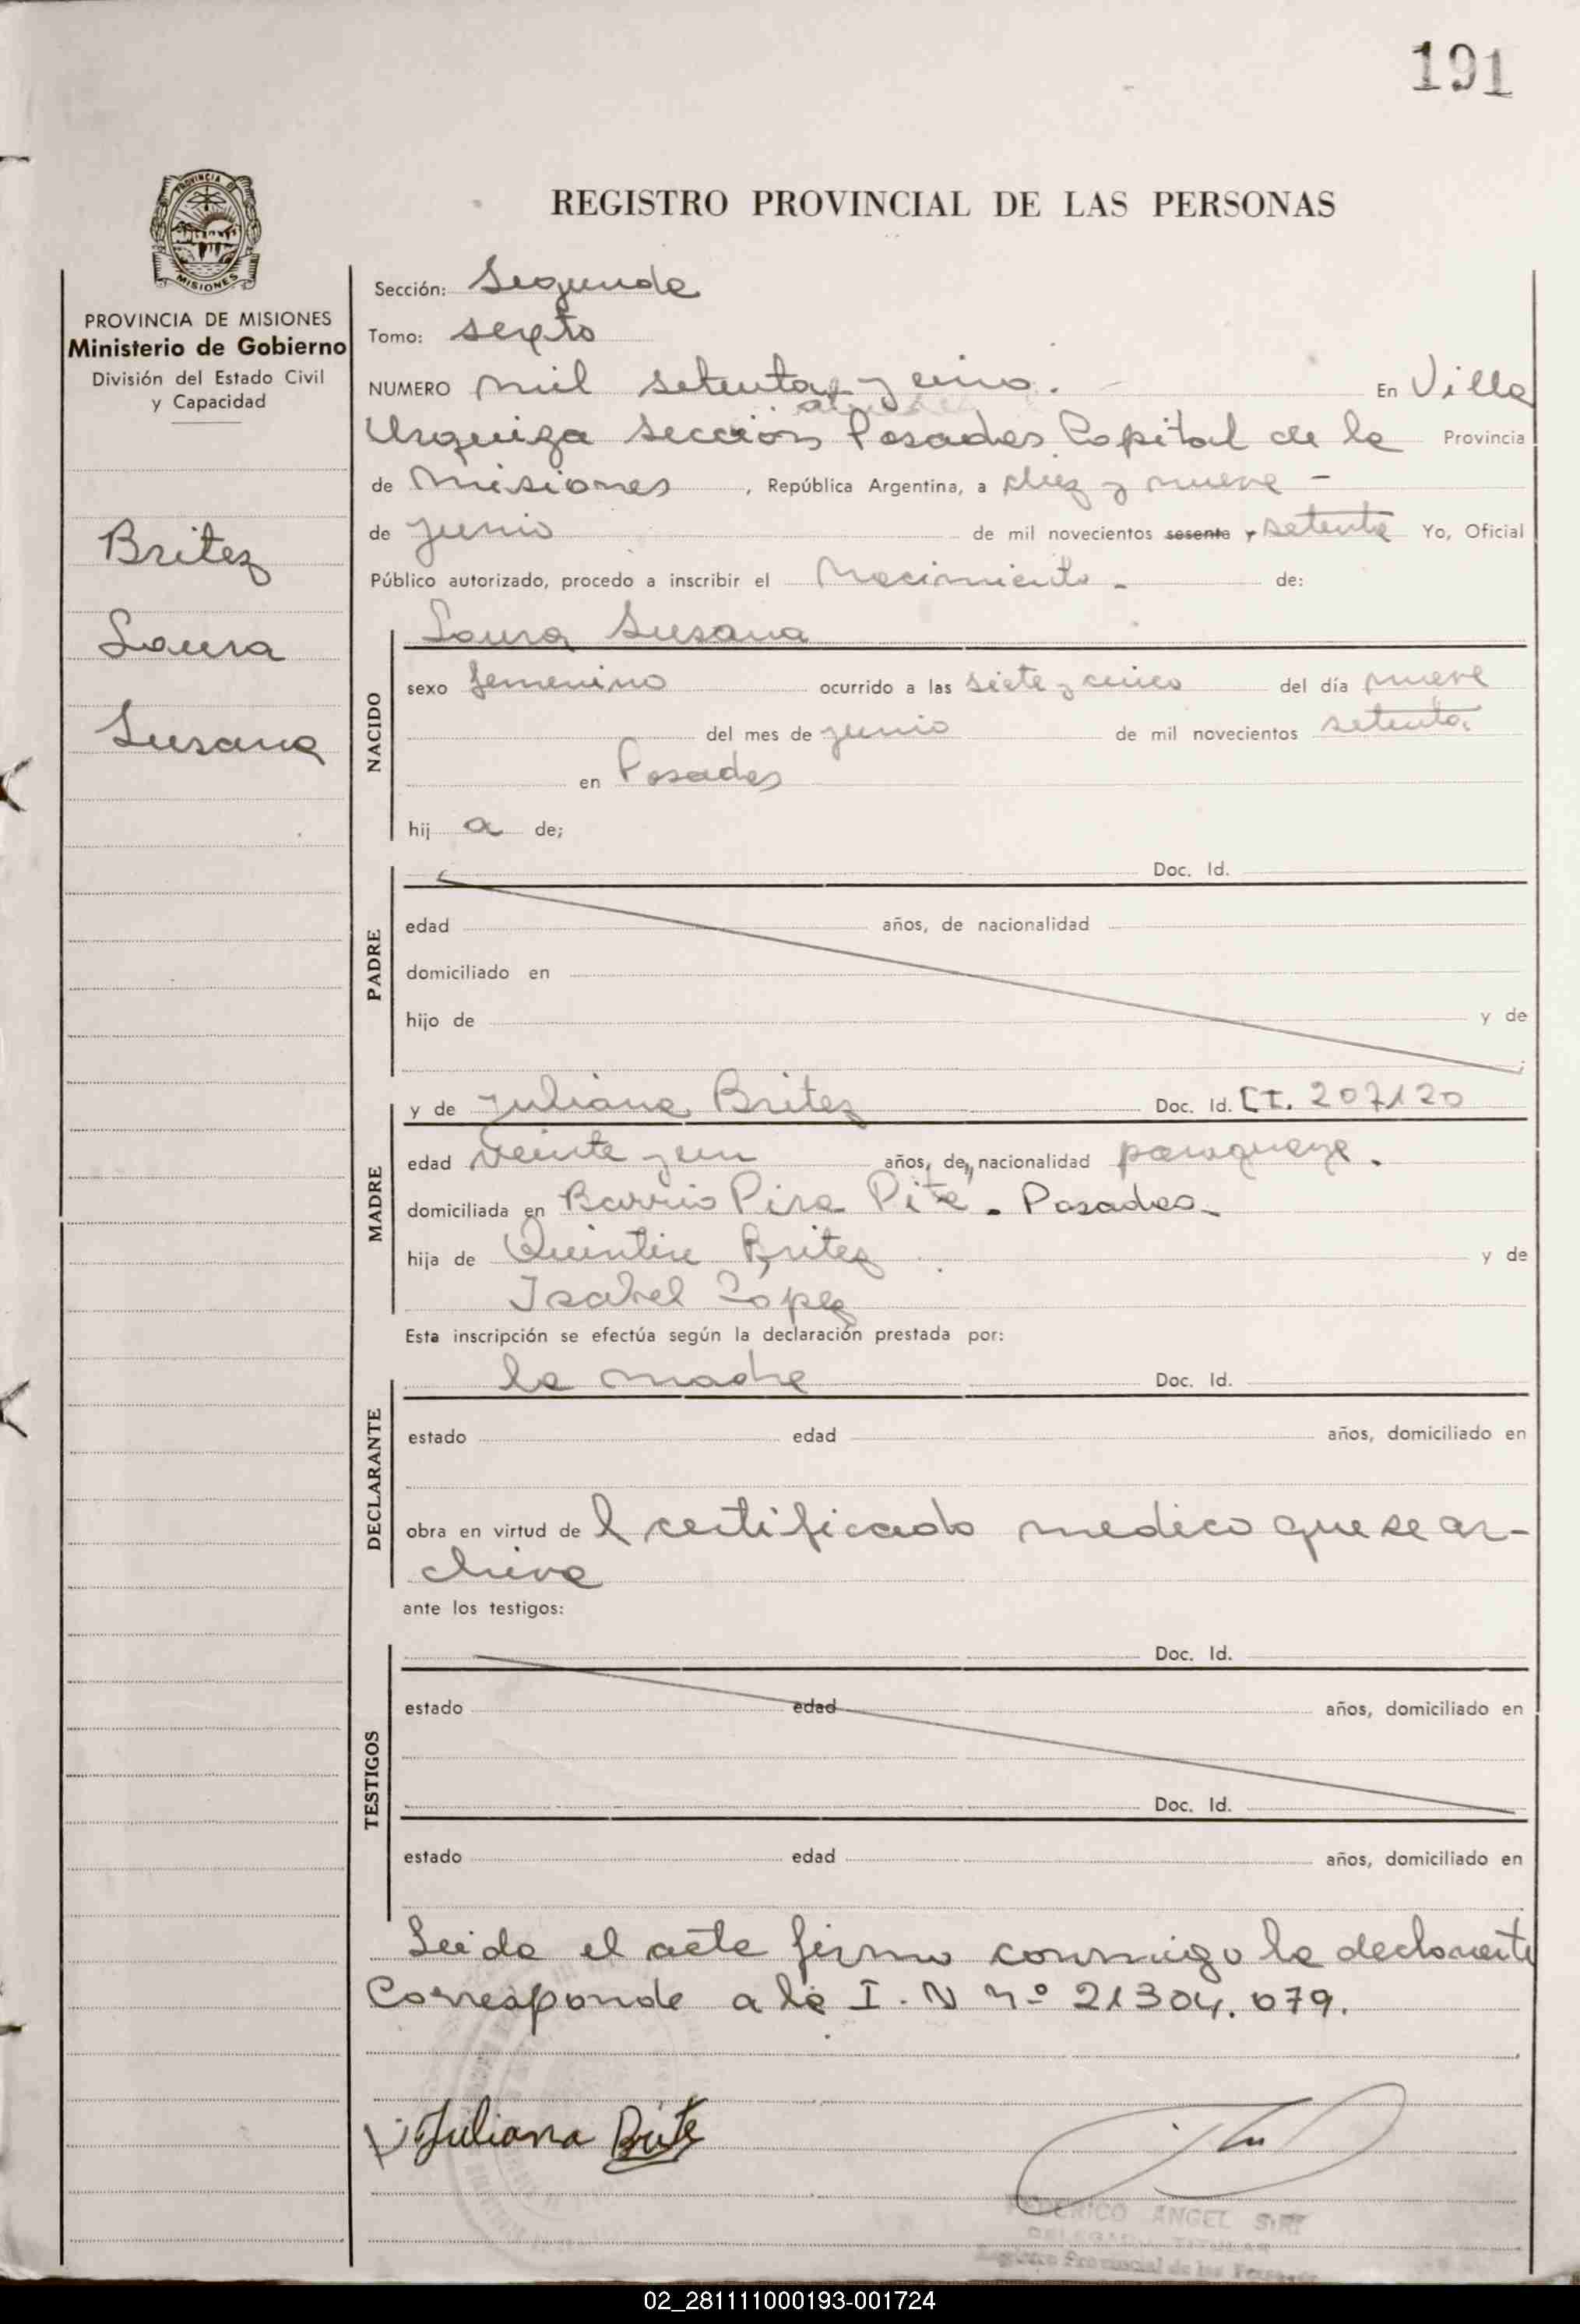 191
PROVINCIA DE
MISIONES
REGISTRO PROVINCIAL DE LAS PERSONAS
PROVINCIA DE MISIONES
Ministerio de Gobierno
División del Estado Civil
y Capacidad
Britez
Laura
Susana
Sección: Segunda
Tomo: sexto
NUMERO mil setenta y cinco. En Villa
Urquiza sección Posadas Capital de la Provincia
de Misiones, República Argentina, a diez y nueve -
de junio de mil novecientos sesenta y setenta Yo, Oficial
Público autorizado, procedo a inscribir el Nacimiento - de:
NACIDO
Laura Susana
sexo femenino ocurrido a las siete y cinco del día nueve
del mes de junio de mil novecientos setenta.
en Posadas
hij a de;
PADRE
Doc. Id.
edad años, de nacionalidad
domiciliado en
hijo de y de
MADRE
y de Juliana Britez Doc. Id. CI. 207120
edad veinte y un años, de nacionalidad paraguaya.
domiciliada en Barrio Pira Pitá. Posadas-
hija de Quintin Britez y de
Isabel López
Esta inscripción se efectúa según la declaración prestada por:
DECLARANTE
la madre Doc. Id.
estado edad años, domiciliado en
obra en virtud de l certificado medico que se ar-
chiva
ante los testigos:
TESTIGOS
Doc. Id.
estado edad años, domiciliado en
Doc. Id.
estado edad años, domiciliado en
Leida el acta firma conmigo la declarante
Corresponde a la I. N nº 21304.079.
Juliana Brite
FEDERICO ANGEL
DELEGADO TITULAR
Registro Provincial de las Personas
02_281111000193-001724